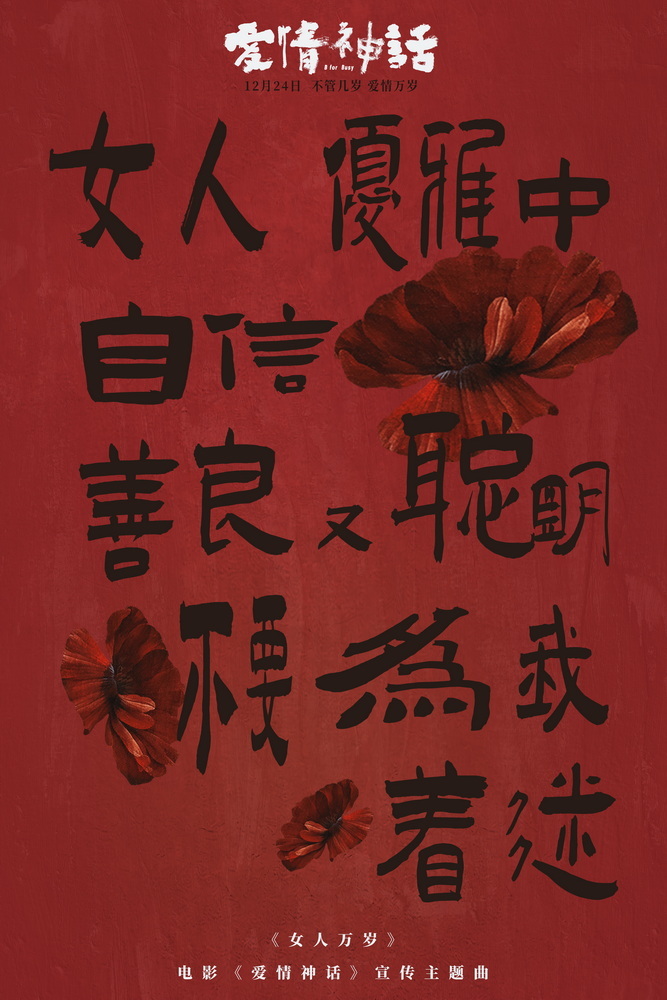 爱情神話
B for Busy
12月24日 不管几岁 爱情万岁
女人 優雅中
自信
善良又聪明
不要為我
着迷
《女人万岁》
电影《爱情神话》宣传主题曲